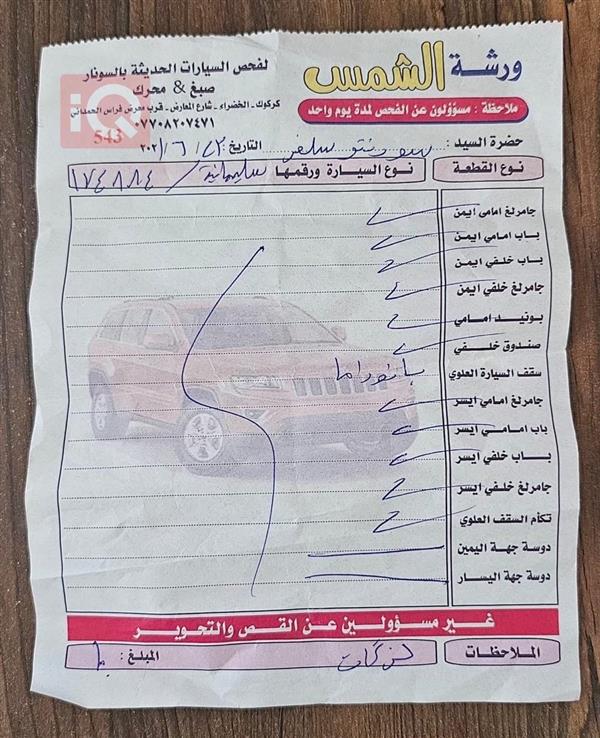 ورشة الشمس
لفحص السيارات الحديثة بالسونار
صبغ & محرك
كركوك - الخضراء - شارع المعارض - قرب معرض فراس الحمداني
٠٧٧٠٨٢٠٧٤٧١
543
iQ
ملاحظة : مسؤولون عن الفحص لمدة يوم واحد
حضرة السيد : سورينتو سلفر التاريخ : ٢٠٢١/٦/٢٣
نوع القطعة نوع السيارة ورقمها سليمانية / ١٧٤٨٨٤
جامرلغ امامي ايمن
باب امامي ايمن
باب خلفي ايمن
جامرلغ خلفي ايمن
بونيد امامي
صندوق خلفي
سقف السيارة العلوي بانوراما
جامرلغ امامي ايسر
باب امامي ايسر
باب خلفي ايسر
جامرلغ خلفي ايسر
تكأم السقف العلوي
دوسة جهة اليمين
دوسة جهة اليسار
غير مسؤولين عن القص والتحوير
الملاحظات لزكات المبلغ :